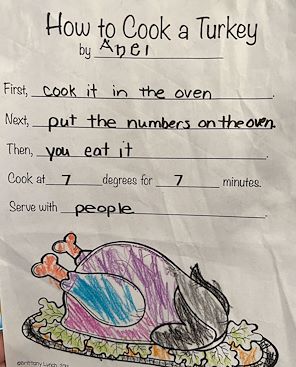 How to Cook a Turkey
by Anel
First, cook it in the oven.
Next, put the numbers on the oven.
Then, you eat it.
Cook at 7 degrees for 7 minutes.
Serve with people.